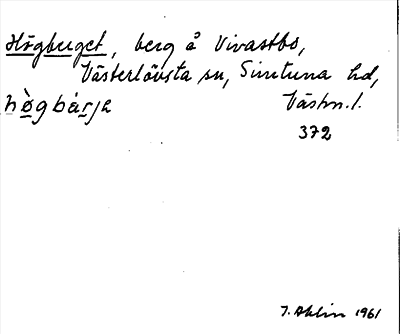 Högberget, berg å Vivastbo,
Västerlövsta sn, Simtuna hd,
hògbàrja Västm. l.
372
J. Ahlin 1961